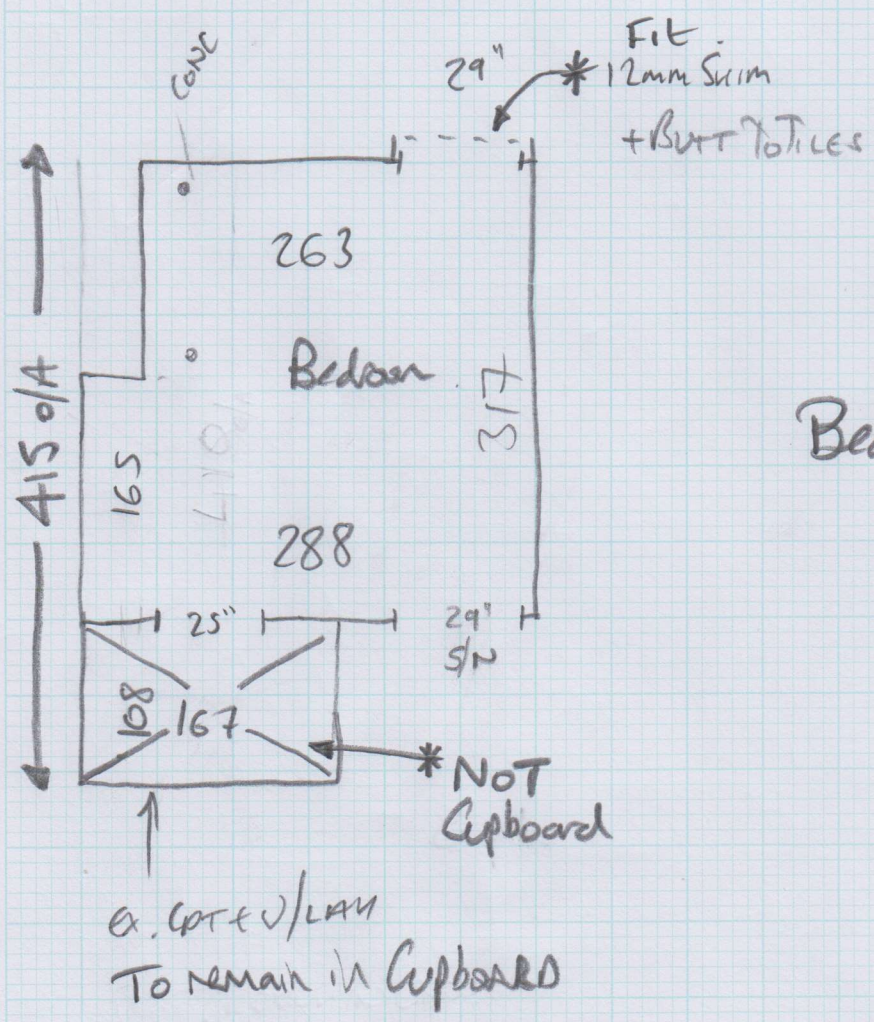 CONC
29"
* Fit
12mm Skim
+ BUTT To TILES
263
415 o/A
Bedroom
317
165
Bed
288
25"
29"
S/N
108
167
* NOT
Cupboard
Ex. CPT + U/LAY
To remain in CupboARD